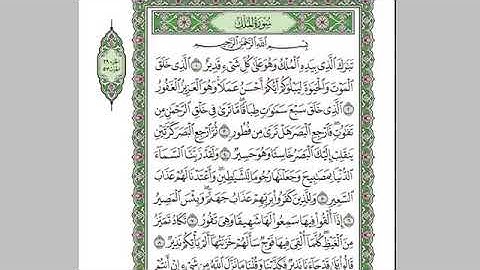 سورة الملك
بسم الله الرحمن الرحيم
تبرك الذي بيده الملك وهو على كل شيء قدير ١ الذي خلق
الموت والحيوة ليبلوكم أيكم أحسن عملا وهو العزيز الغفور
٢ الذي خلق سبع سموت طباقا ما ترى في خلق الرحمن من
تفوت فارجع البصر هل ترى من فطور ٣ ثم ارجع البصر كرتين
ينقلب إليك البصر خاسئا وهو حسير ٤ ولقد زينا السماء
الدنيا بمصبيح وجعلنها رجوما للشيطين وأعتدنا لهم عذاب
السعير ٥ وللذين كفروا بربهم عذاب جهنم وبئس المصير
٦ إذا ألقوا فيها سمعوا لها شهيقا وهي تفور ٧ تكاد تميز
من الغيظ كلما ألقي فيها فوج سألهم خزنتها ألم يأتكم نذير ٨
قالوا بلى قد جاءنا نذير فكذبنا وقلنا ما نزل الله من شيء إن أنتم